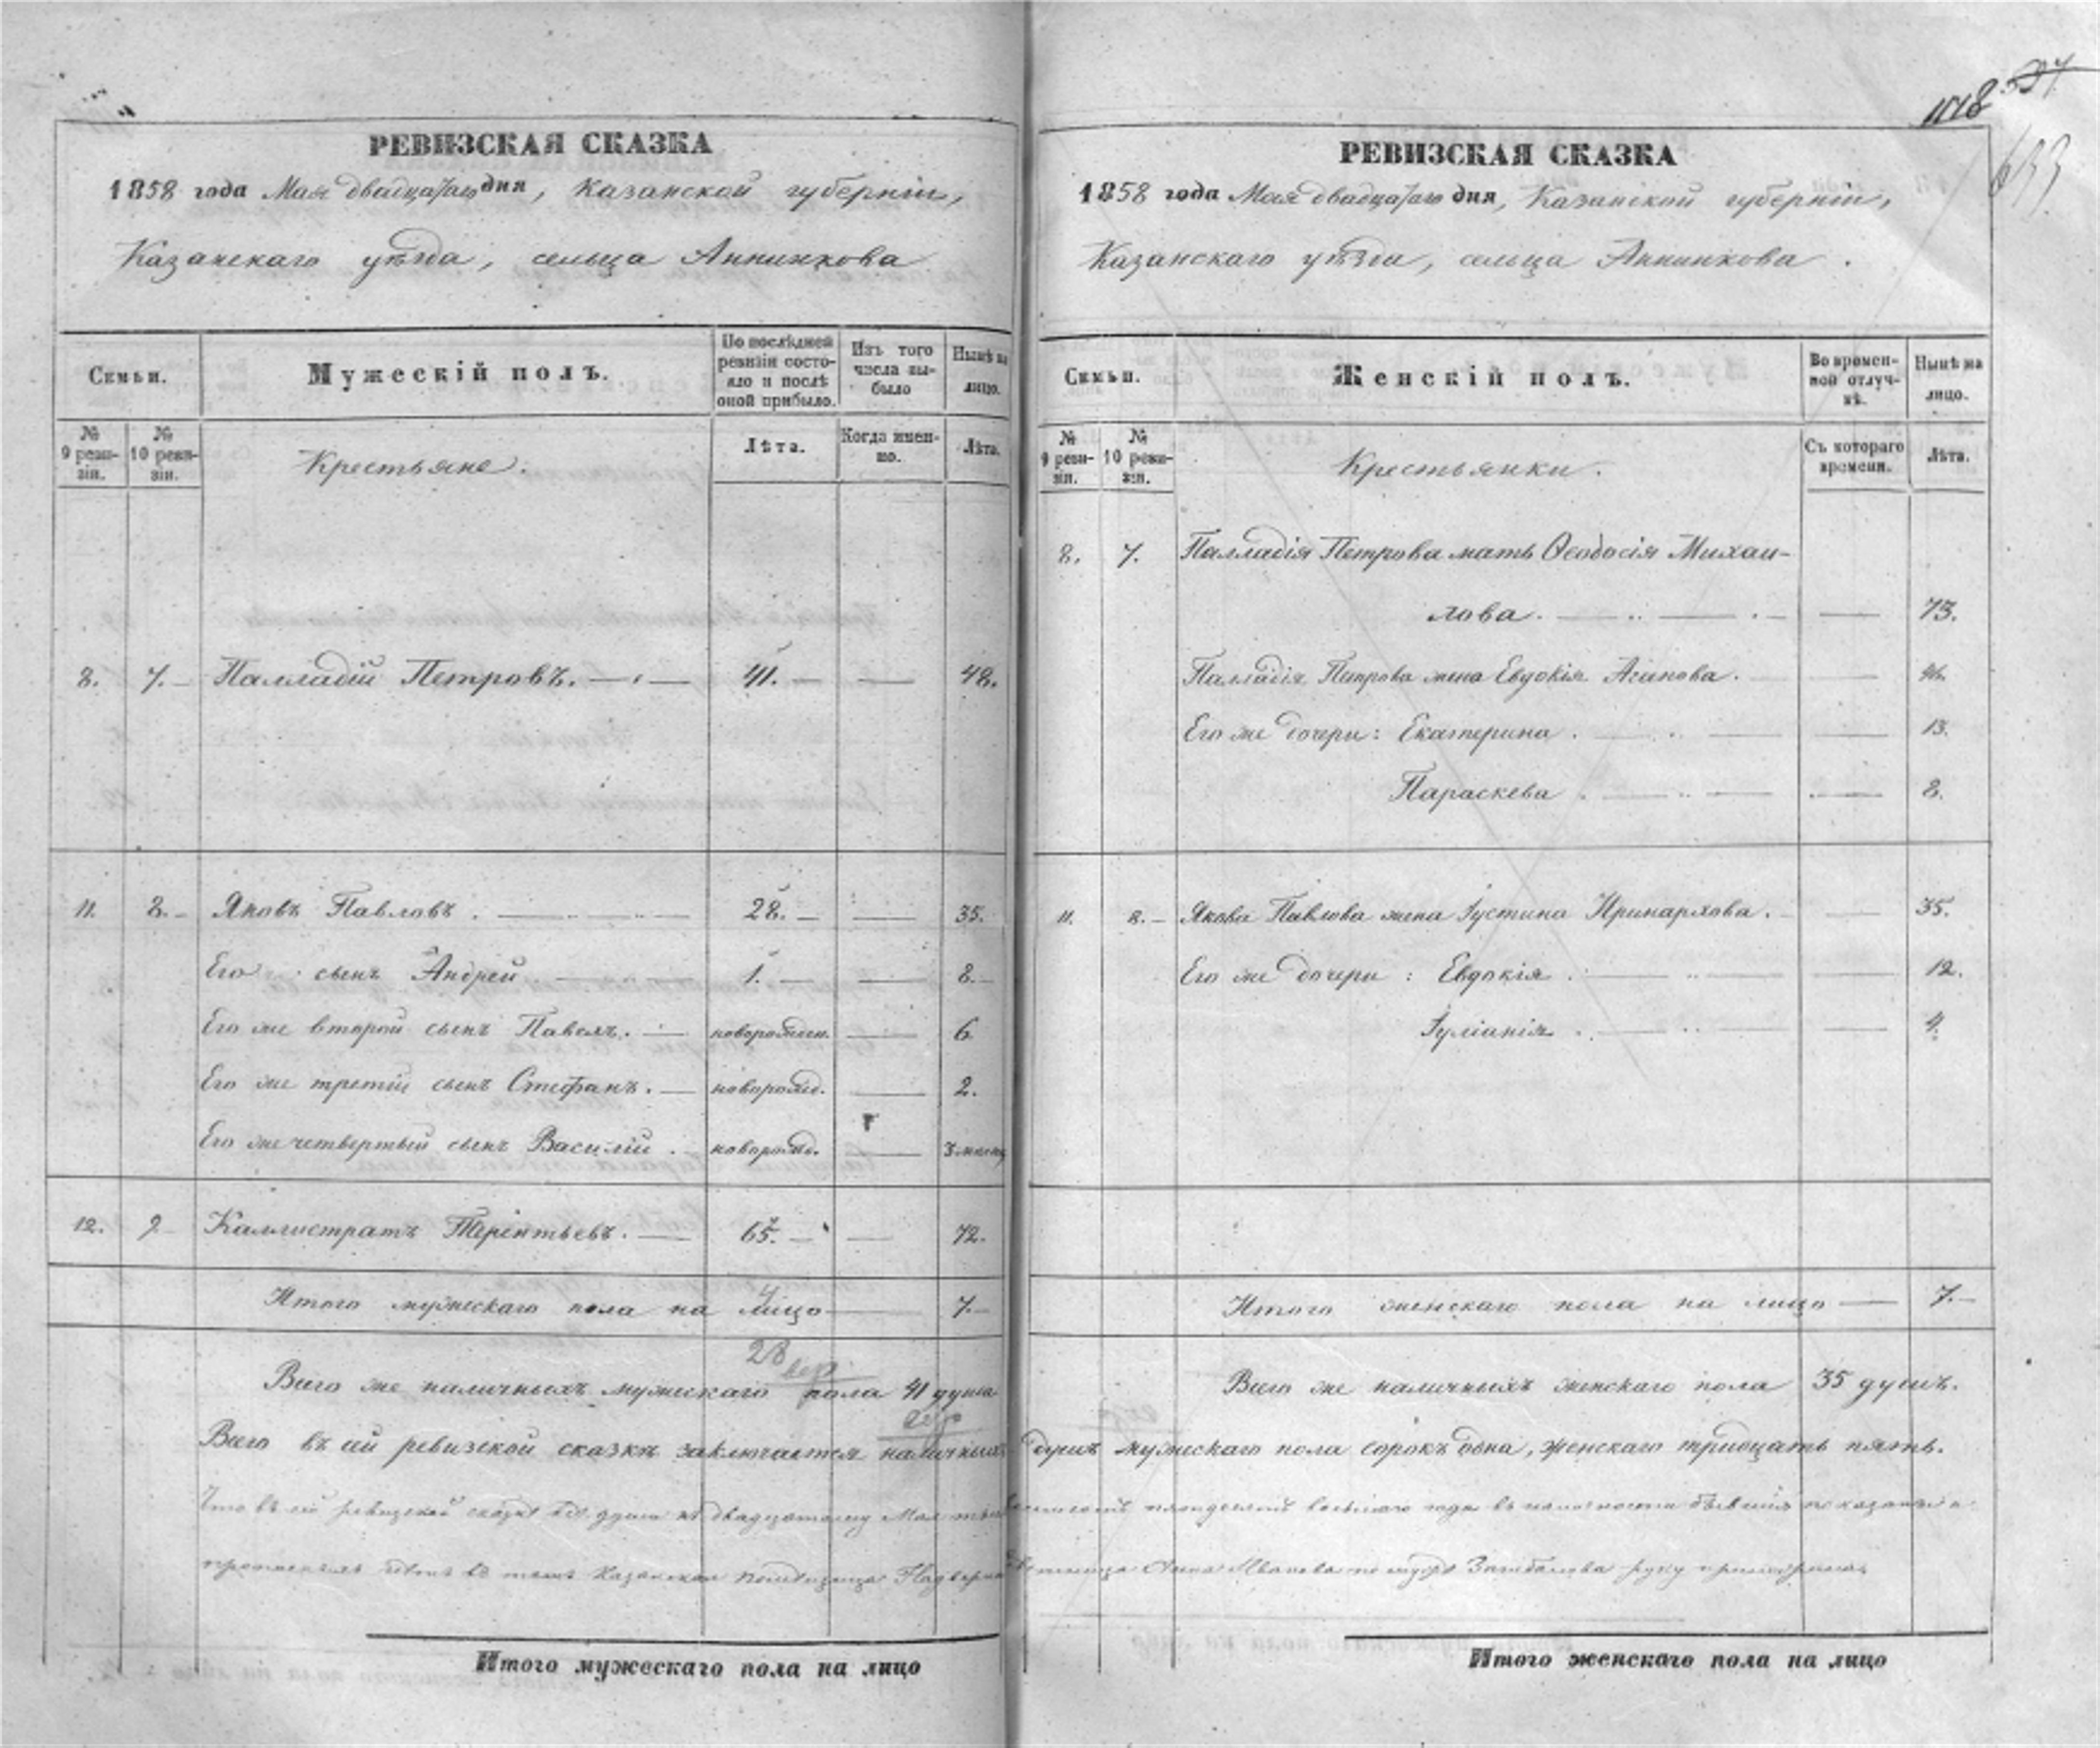 1118 537
633
РЕВИЗСКАЯ СКАЗКА
1858 года Мая двадцатаго дня, Казанской губерніи,
Казанскаго уѣзда, сельца Аннинкова
Семьи.
Мужескій полъ.
По послѣдней ревизіи состояло и послѣ оной прибыло.
Изъ того числа выбыло
Нынѣ на лицо.
№ 9 ревизіи.
№ 10 ревизіи.
Крестьяне.
Лѣта.
Когда именно.
Лѣта.
8. 7. Палладій Петровъ. 41. 48.
11. 8. Яковъ Павловъ. 28. 35.
Его сынъ Андрей 1. 8.
Его же второй сынъ Павелъ. новорожден. 6.
Его же третій сынъ Стефанъ. новорожд. 2.
Его же четвертый сынъ Василій. новорожд. 3 месяц
12. 9. Каллистратъ Терентьевъ. 65. 72.
Итого мужескаго пола на лицо 7.
28
Всего же наличныхъ мужескаго пола 41 душа
Всего въ сей ревизской сказкѣ заключается наличныхъ
Что въ сей ревизской сказкѣ всѣ души къ двадцатому Мая
Казанская помѣщица Надворная
Итого мужескаго пола на лицо
РЕВИЗСКАЯ СКАЗКА
1858 года Мая двадцатаго дня, Казанской губерніи,
Казанскаго уѣзда, сельца Аннинкова.
Семьи.
Женскій полъ.
Во временной отлучкѣ.
Нынѣ на лицо.
№ 9 ревизіи.
№ 10 ревизіи.
Крестьянки.
Съ котораго времени.
Лѣта.
8. 7. Палладія Петрова мать Ѳеодосія Михаи-
лова. 73.
Палладія Петрова жена Евдокія Агапова. 46.
Его же дочери: Екатерина. 13.
Параскева. 8.
11. 8. Якова Павлова жена Іустина Иринархова. 35.
Его же дочери: Евдокія. 12.
Іуліанія. 4.
Итого женскаго пола на лицо 7.
Всего же наличныхъ женскаго пола 35 душъ.
душъ мужескаго пола сорокъ одна, женскаго тридцать пять.
пятьдесятъ восьмаго года въ наличности бывшія показаны и
Анна Иванова по мужѣ руку приложила
Итого женскаго пола на лицо